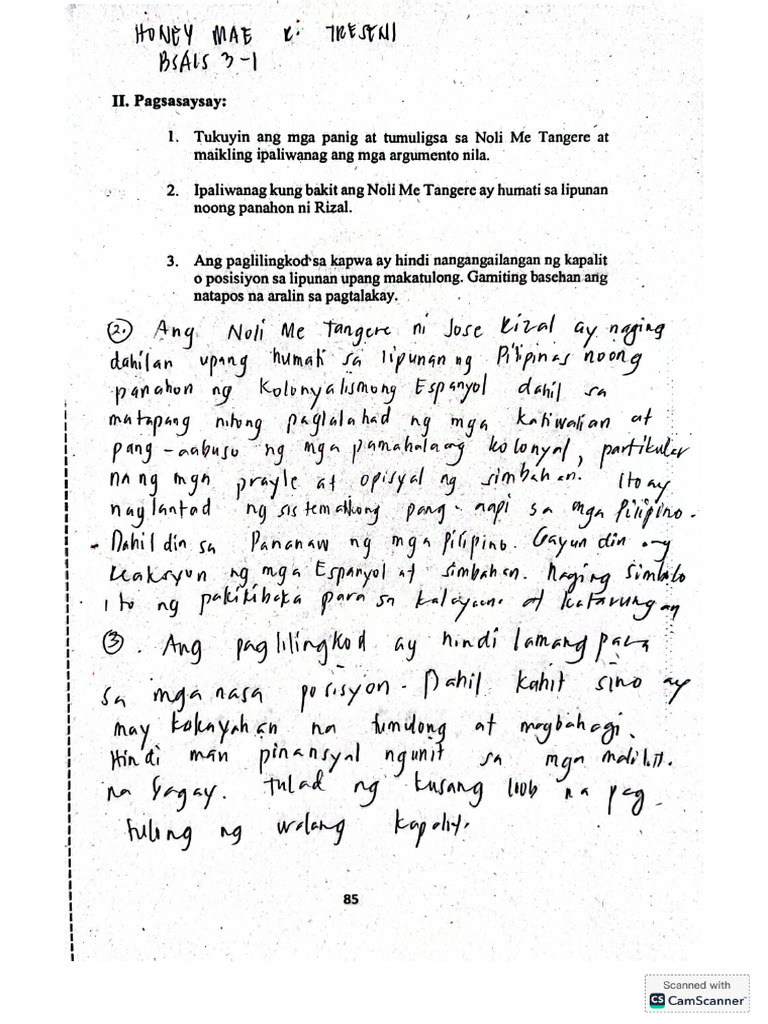 HONEY MAE R. TRESENI
BSAIS 3-1
II. Pagsasaysay:
1. Tukuyin ang mga panig at tumuligsa sa Noli Me Tangere at
maikling ipaliwanag ang mga argumento nila.
2. Ipaliwanag kung bakit ang Noli Me Tangere ay humati sa lipunan
noong panahon ni Rizal.
3. Ang paglilingkod sa kapwa ay hindi nangangailangan ng kapalit
o posisiyon sa lipunan upang makatulong. Gamiting basehan ang
natapos na aralin sa pagtalakay.
2. Ang Noli Me Tangere ni Jose Rizal ay naging
dahilan upang humati sa lipunan ng Pilipinas noong
panahon ng Kolonyalismong Espanyol dahil sa
matapang nitong paglalahad ng mga katiwalian at
pang-aabuso ng mga pamahalaang kolonyal, partikular
na ng mga prayle at opisyal ng simbahan. Ito ay
naglantad ng sistematikong pang-aapi sa mga Pilipino.
- Dahil din sa Pananaw ng mga Pilipino. Gayun din ang
Reaksyon ng mga Espanyol at simbahan. Naging Simbolo
ito ng pakikibaka para sa kalayaan at katarungan
3. Ang paglilingkod ay hindi lamang para
sa mga nasa posisyon. Dahil kahit sino ay
may kakayahan na tumulong at magbahagi.
Hindi man pinansyal ngunit sa mga maliliit
na bagay. Tulad ng kusang loob na pag
tulong ng walang kapalit.
85
Scanned with
CS CamScanner